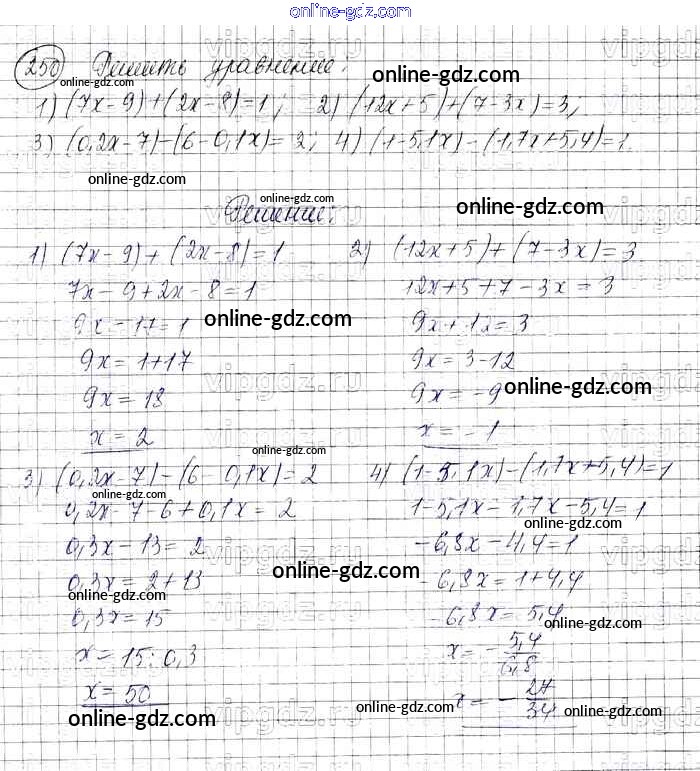 online-gdz.com
250 Решить уравнение:
online-gdz.com
1) (7x-9)+(2x-8)=1; 2) (12x+5)+(7-3x)=3;
online-gdz.com
3) (0,2x-7)-(6-0,1x)=2; 4) (1-5,1x)-(1,7x+5,4)=1.
online-gdz.com
online-gdz.com
online-gdz.com
Решение:
1) (7x-9)+(2x-8)=1
7x-9+2x-8=1
9x-17=1
online-gdz.com
9x=1+17
9x=18
x=2
2) (12x+5)+(7-3x)=3
12x+5+7-3x=3
9x+12=3
9x=3-12
9x=-9
online-gdz.com
x=-1
online-gdz.com
3) (0,2x-7)-(6-0,1x)=2
online-gdz.com
0,2x-7-6+0,1x=2
0,3x-13=2
0,3x=2+13
online-gdz.com
online-gdz.com
0,3x=15
x=15:0,3
x=50
online-gdz.com
4) (1-5,1x)-(1,7x+5,4)=1
1-5,1x-1,7x-5,4=1
online-gdz.com
-6,8x-4,4=1
-6,8x=1+4,4
-6,8x=5,4
online-gdz.com
x=-5,4/6,8
x=-27/34
online-gdz.com
online-gdz.com
vipgdz.ru